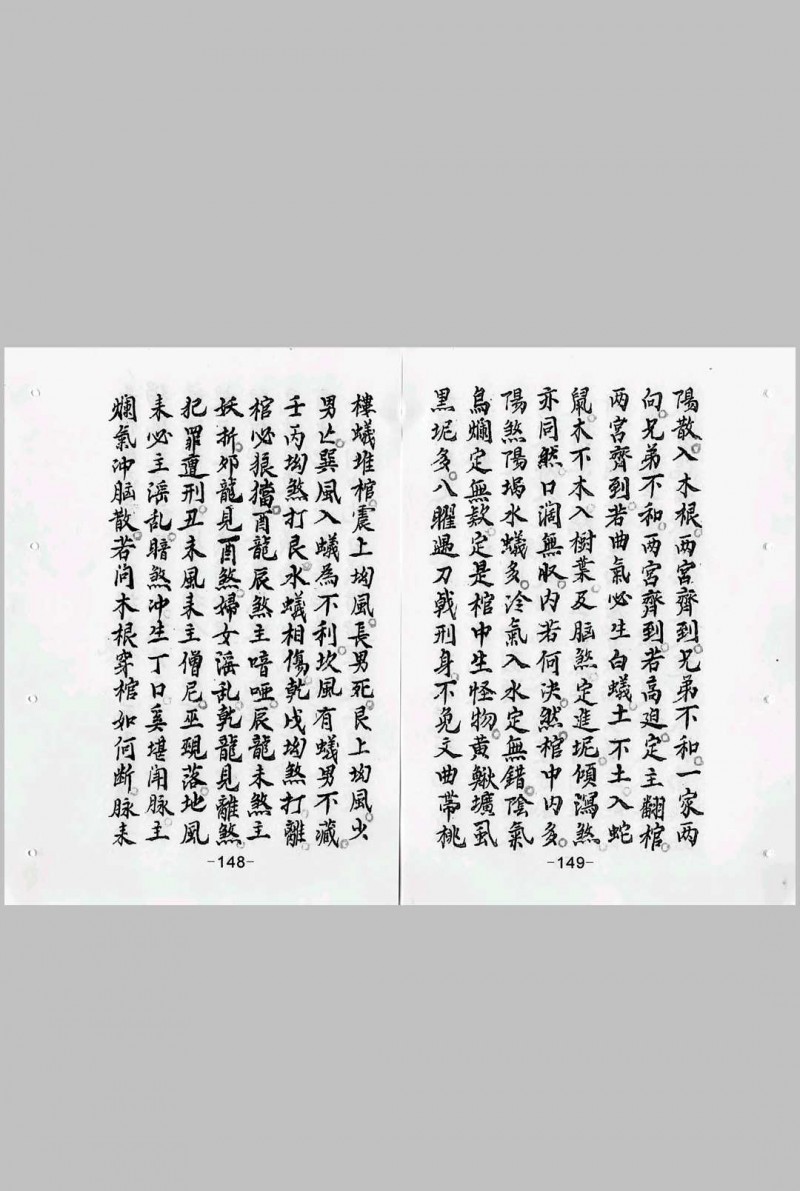 樓蟻堆棺震上坳風。長男死。艮上坳風。少
男亡。巽風入蟻為不利。坎風有蟻男不藏。
壬丙坳煞打艮水蟻相傷。乾戌坳煞打離
棺必狼擋。酉龍辰煞主喑啞。辰龍未煞主
妖折。夘龍見酉煞。婦女滛乱。乾龍見離煞。
犯罪遭刑。丑未風来主僧尼。巫覡落地風
来必主滛乱。暗煞冲生丁口奚堪閗脉主
爛氣冲脑散。若问木根穿棺如何断。脉来
-148-
陽散入木根。两宮齊到。兄弟不和。一家两
向。兄弟不和。两宮齊到。若高迫定主翻棺。
两宮齊到。若曲氣必生白蟻。土不土入蛇
鼠。木不木入樹葉及脑煞定進坭。傾瀉煞。
亦同然。口濶無収。内若何決。然棺中内多。
陽煞陽塢水蟻多。冷氣入水定無錯。陰氣
烏爛定無款。定是棺中生怪物。黄鰍壙虱
黑坭多。八曜遇刀戟刑身。不免文曲帶桃
-149-